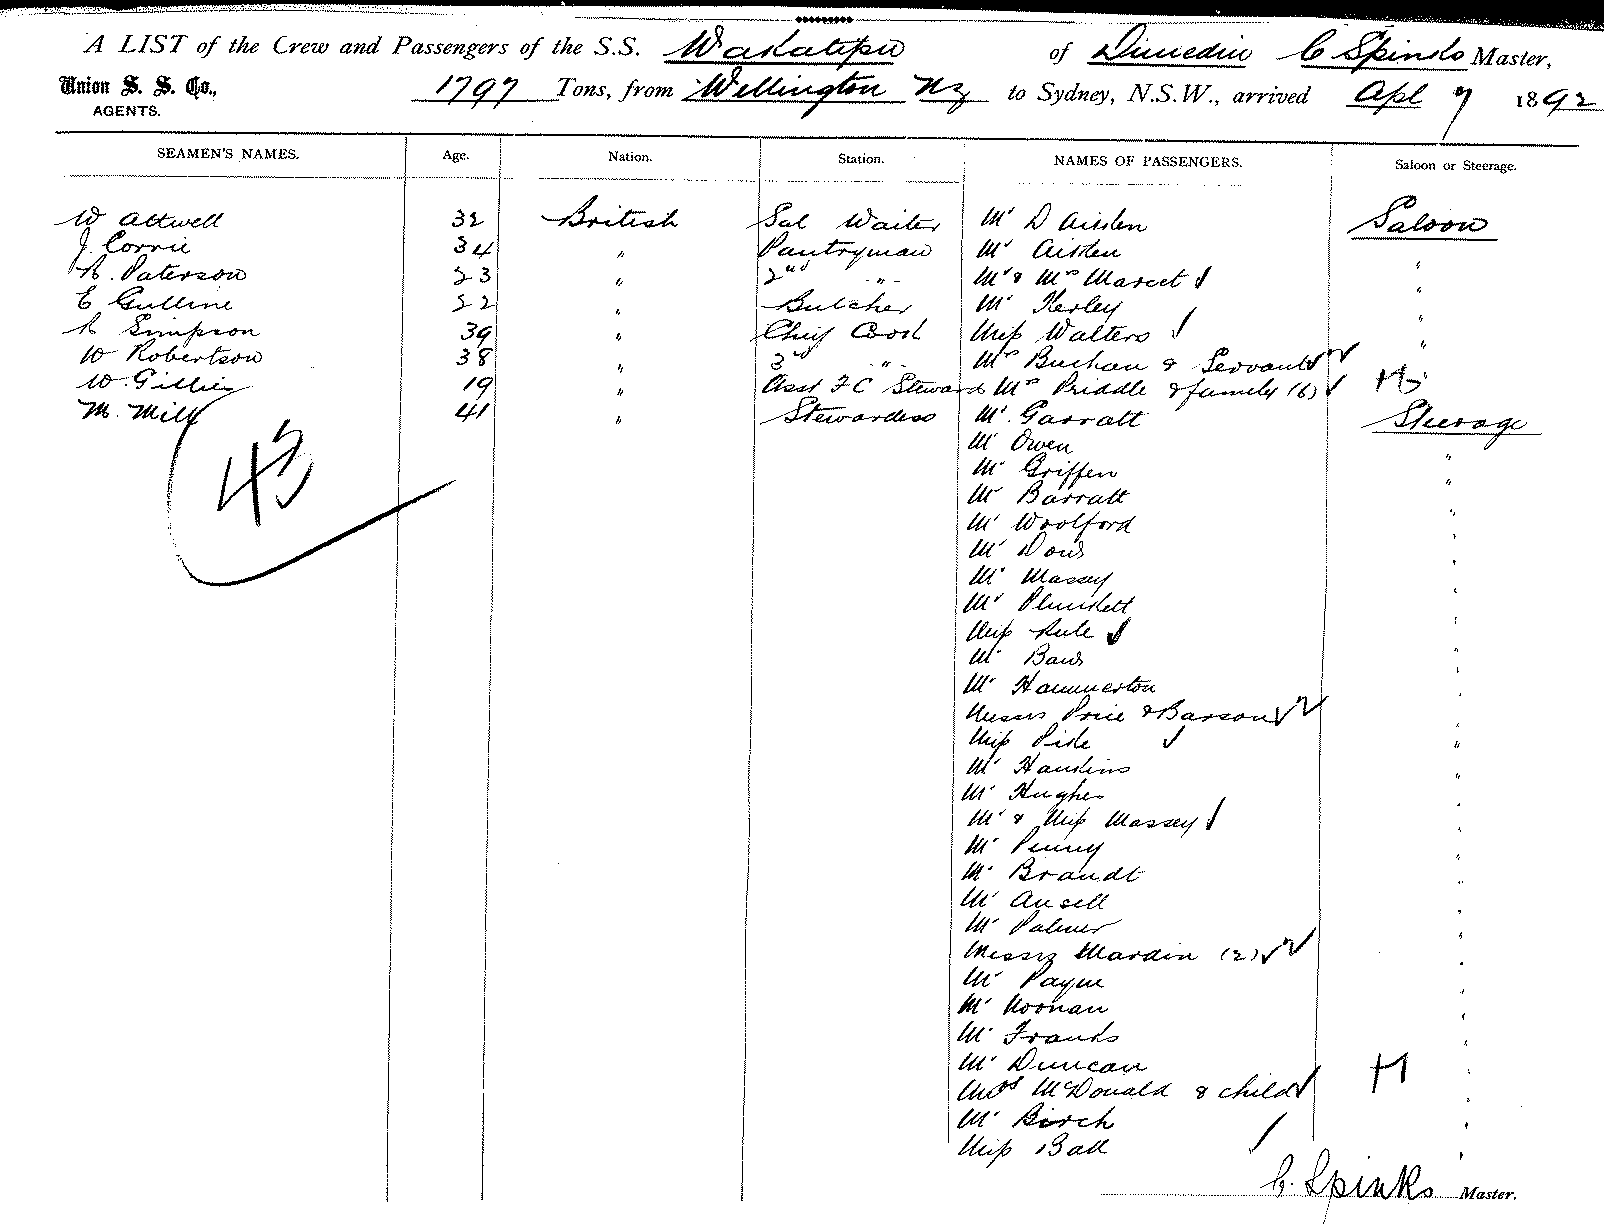 A LIST of the Crew and Passengers of the S.S. Wakatipu of Dunedin C Spinks Master,
Union S. S. Co., 1797 Tons, from Wellington NZ to Sydney, N.S.W., arrived Apl 7 1892
AGENTS.
SEAMEN'S NAMES. Age. Nation. Station. NAMES OF PASSENGERS. Saloon or Steerage.
W Attwell 32 British Sal Waiter Mr D Aitken Saloon
J Corrie 34 " Pantryman Mr Aitken "
R. Paterson 23 " 2nd " Mr & Mrs Marcet "
E Gulline 22 " Butcher Mr Kerley "
R Simpson 39 " Chief Cook Miss Walters "
W Robertson 38 " 3rd " Mrs Buchan & Servant
W. Gillies 19 " Asst F C Steward Mrs Priddle & family (6)
M. Mill 41 " Stewardess Mr Garratt Steerage
43
Mr Owen "
Mr Griffen "
Mr Barratt "
Mr Woolford "
Mr Dow "
Mr Massey "
Mr Plunkett "
Miss Rule "
Mr Baws "
Mr Hammerton "
Messrs Price & Barson "
Miss Pike "
Mr Hankins "
Mr Hughes "
Mr & Miss Massey "
Mr Penny "
Mr Brandt "
Mr Ansell "
Mr Palmer "
Messrs Mardin (2) "
Mr Payne "
Mr Noonan "
Mr Franks "
Mr Duncan "
Mrs McDonald & child "
Mr Birch "
Miss Ball "
C. Spinks Master.